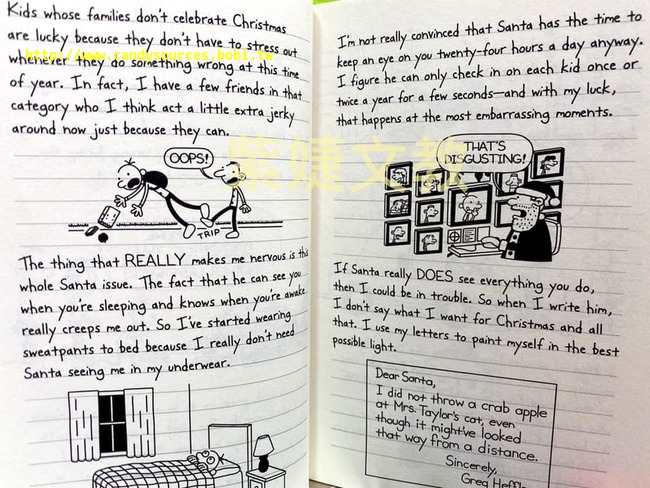 Kids whose families don't celebrate Christmas
are lucky because they don't have to stress out
http://www.candysources.bob1.tw
whenever they do something wrong at this time
of year. In fact, I have a few friends in that
category who I think act a little extra jerky
around now just because they can.
OOPS!
TRIP
The thing that REALLY makes me nervous is this
whole Santa issue. The fact that he can see you
when you're sleeping and knows when you're awake
really creeps me out. So I've started wearing
sweatpants to bed because I really don't need
Santa seeing me in my underwear.
I'm not really convinced that Santa has the time to
keep an eye on you twenty-four hours a day anyway.
I figure he can only check in on each kid once or
twice a year for a few seconds—and with my luck,
that happens at the most embarrassing moments.
紫婕文教
THAT'S
DISGUSTING!
If Santa really DOES see everything you do,
then I could be in trouble. So when I write him,
I don't say what I want for Christmas and all
that. I use my letters to paint myself in the best
possible light.
Dear Santa,
I did not throw a crab apple
at Mrs. Taylor's cat, even
though it might've looked
that way from a distance.
Sincerely,
Greg